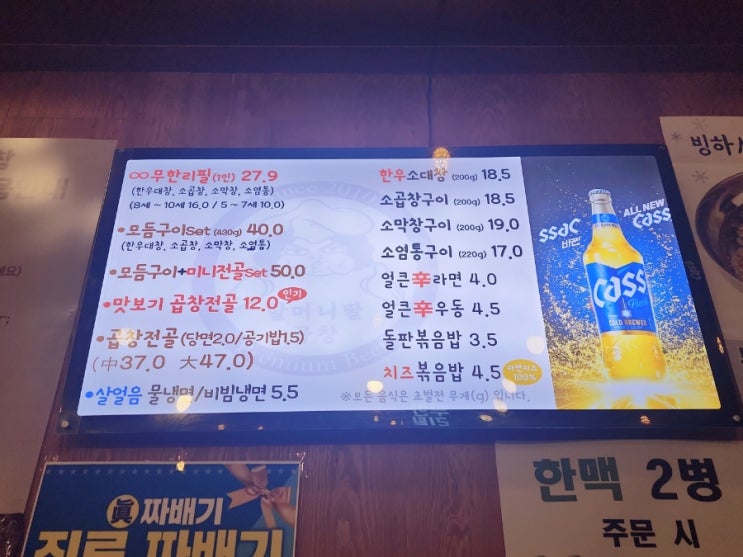 ∞무한리필(1인) 27.9
(한우대창, 소곱창, 소막창, 소염통)
(8세 ~ 10세 16.0 / 5 ~ 7세 10.0)
•모듬구이set (430g) 40.0
(한우대창, 소곱창, 소막창, 소염통)
•모듬구이+미니전골set 50.0
•맛보기 곱창전골 12.0 인기
•곱창전골 (당면2.0/공기밥1.5)
(中37.0 大47.0)
•살얼음 물냉면/비빔냉면 5.5
한우소대창 (200g) 18.5
소곱창구이 (200g) 18.5
소막창구이 (200g) 19.0
소염통구이 (220g) 17.0
얼큰辛라면 4.0
얼큰辛우동 4.5
돌판볶음밥 3.5
치즈볶음밥 4.5 자연치즈 100%
※모든 음식은 초벌전 무게(g) 입니다.
ssac
ALL NEW
Cass
Cass
COLD BREWED
빙하
眞 짜배기
진로 짜배기
한맥 2병
주문 시